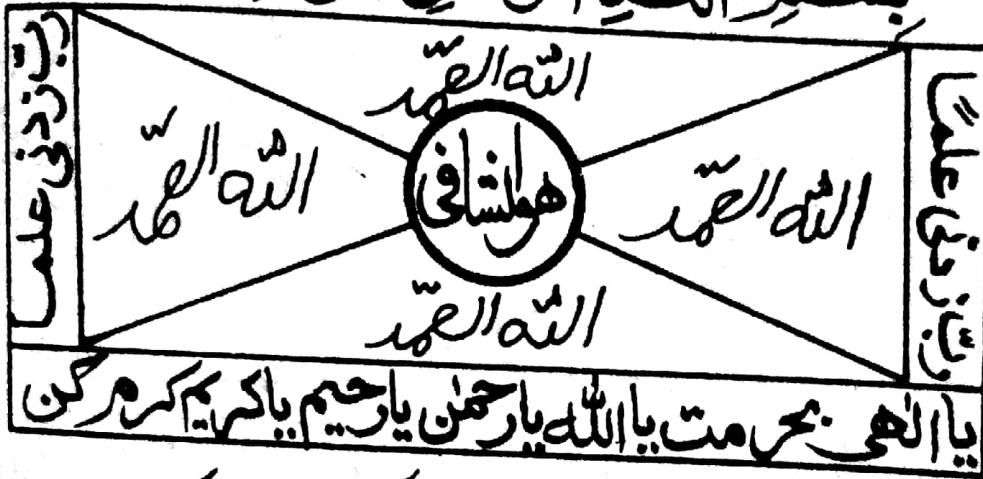 رب زدنی علماً
الله الصمد
الله الصمد
هوالشافی
الله الصمد
الله الصمد
رب زدنی علما
یا الٰهی بحرمت یا الله یا رحمٰن یا رحیم یا کریم کرم کن